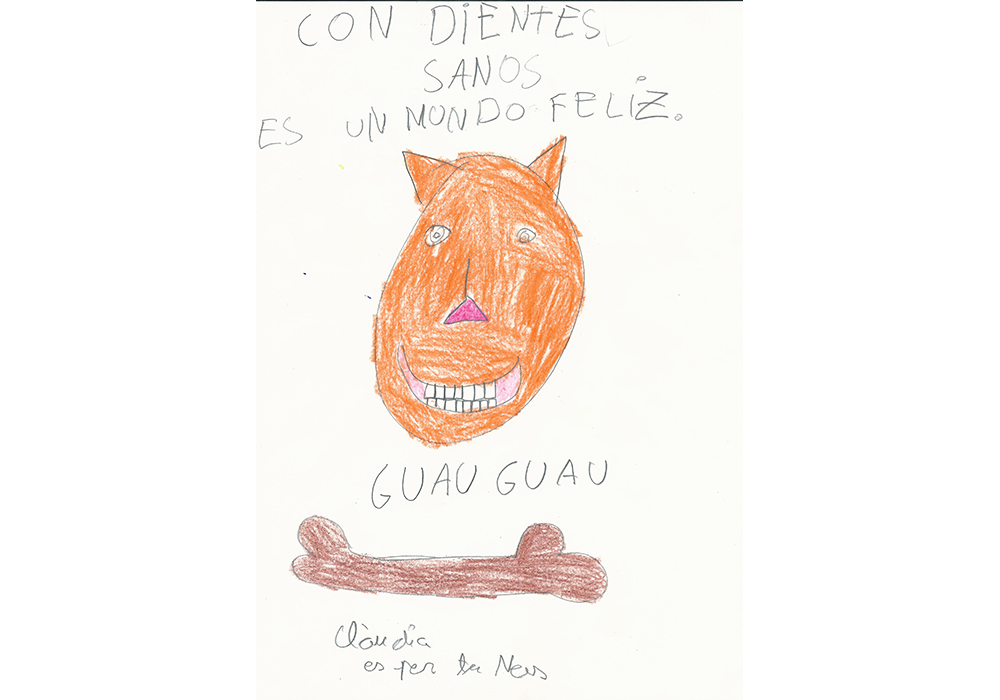 CON DIENTES
SANOS
ES UN MUNDO FELIZ.
GUAU GUAU
Clàudia
es per la Neus